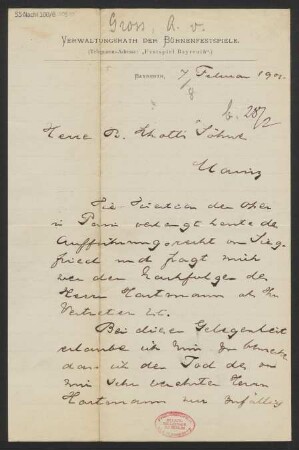 55 Nachl 100/B
Gross, A. v.
VERWALTUNGSRATH DER BÜHNENFESTSPIELE.
(Telegramm-Adresse: „Festspiel Bayreuth“)
BAYREUTH, 7/ Februar 1901.
8
b. 28/2
Herrn B. Schott's Söhne
Mainz
Die Direction der Oper
in Paris verlangt heute das
Aufführungsrecht von Sieg-
fried und fragt mich
wer der Nachfolger des
Herrn Hartmann als Ihr
Vertreter ist.
Bei dieser Gelegenheit
erlaube ich mir zu bemerken
dass ich den Tod des von
mir sehr verehrten Herrn
Hartmann nur zufällig